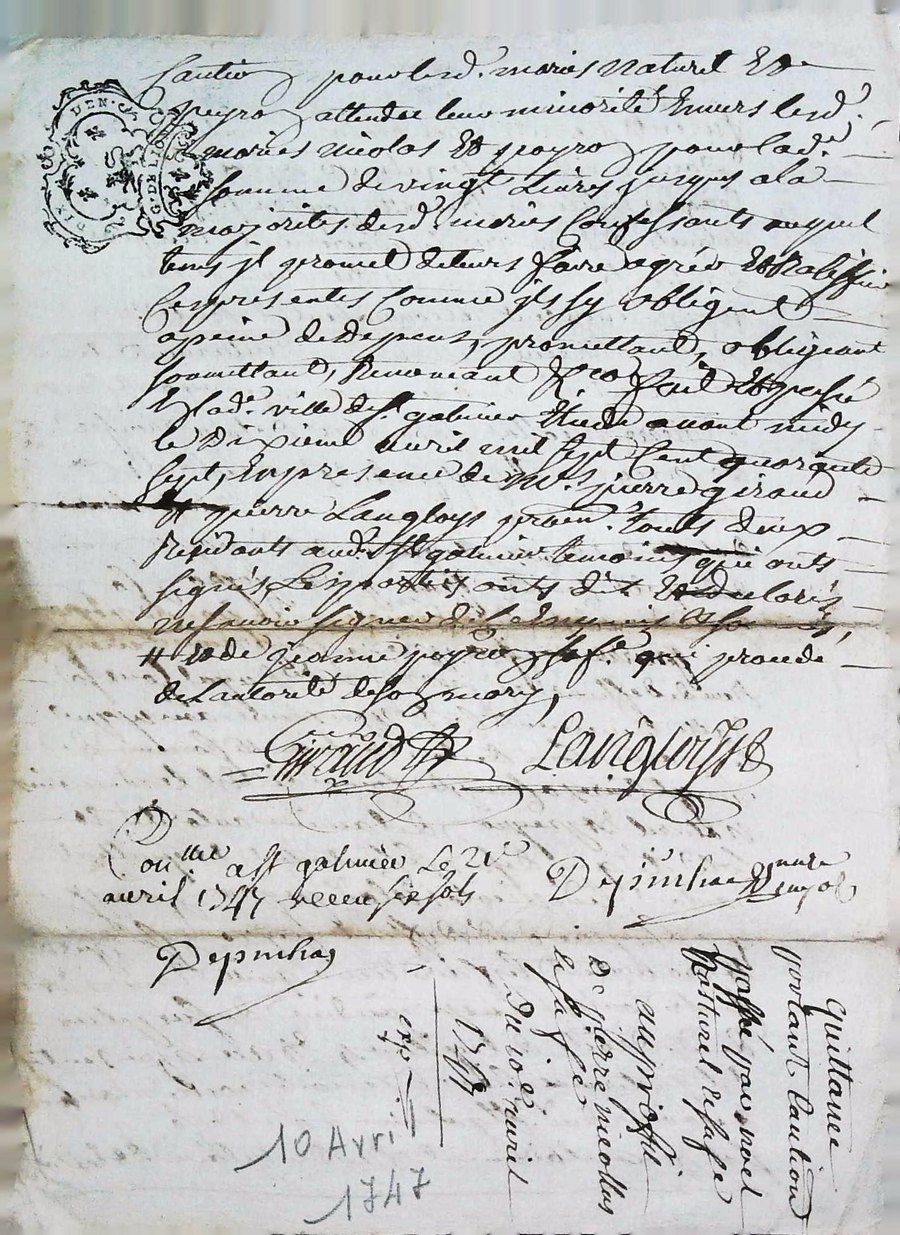 Caution pour lesd. mariés Naturel Et
peyro attendu leur minorité Envers lesd.
mariés nicolas Et peyro pour lad.e
Somme de vingt Livres jusques a la
majorités desd. mariés Confessants auquel
tems jl promet de leurs faire agréer Et Ratiffier
Ces présentes Comme jls sy obligent
a peine de Depens, promettant, obligeant
soumettant, Renoncant &ca fait Et passé
En lad.e ville de St. galmier Etude avant midy
le Dixieme avril mil sept Cent quarante
sept, En presence de Mrs. pierre giraud
Et pierre Langloys tous deux
Residants aud. St galmier temoins qui onts
signés Les parties onts dit Et declarés
ne scavoir signer de ce Enquis
# Et de jeanne peyro sa fe. qui procede
de Lautorité de son mary,
Giraud Langloys
Con.lle a St galmier Le 21e
avril 1747 receu six sols
Depinhac
Depinhac
G. DE LION
DEN
quittance
portant Caution
passé par noel
Naturel et sa fe
au proffit
De pierre nicollas
et sa fe
Du 10e avril
1747
exp
10 Avril
1747